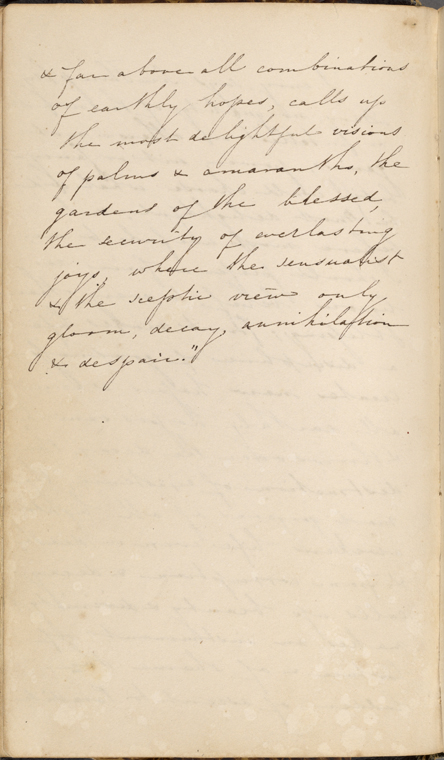 & far above all combinations
of earthly hopes, calls up
the most delightful visions
of palms & amaranths, the
gardens of the blessed,
the security of everlasting
joys, where the sensualist
& the sceptic view only
gloom, decay, annihilation
& despair."